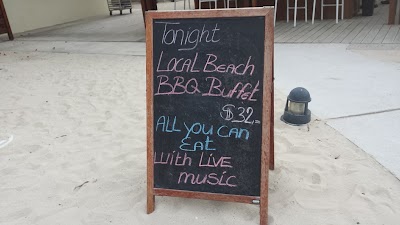 Tonight
LOCAL BEACH
BBQ BUFFET
$32.
ALL YOU CAN
EAT
WITH LIVE
MUSIC